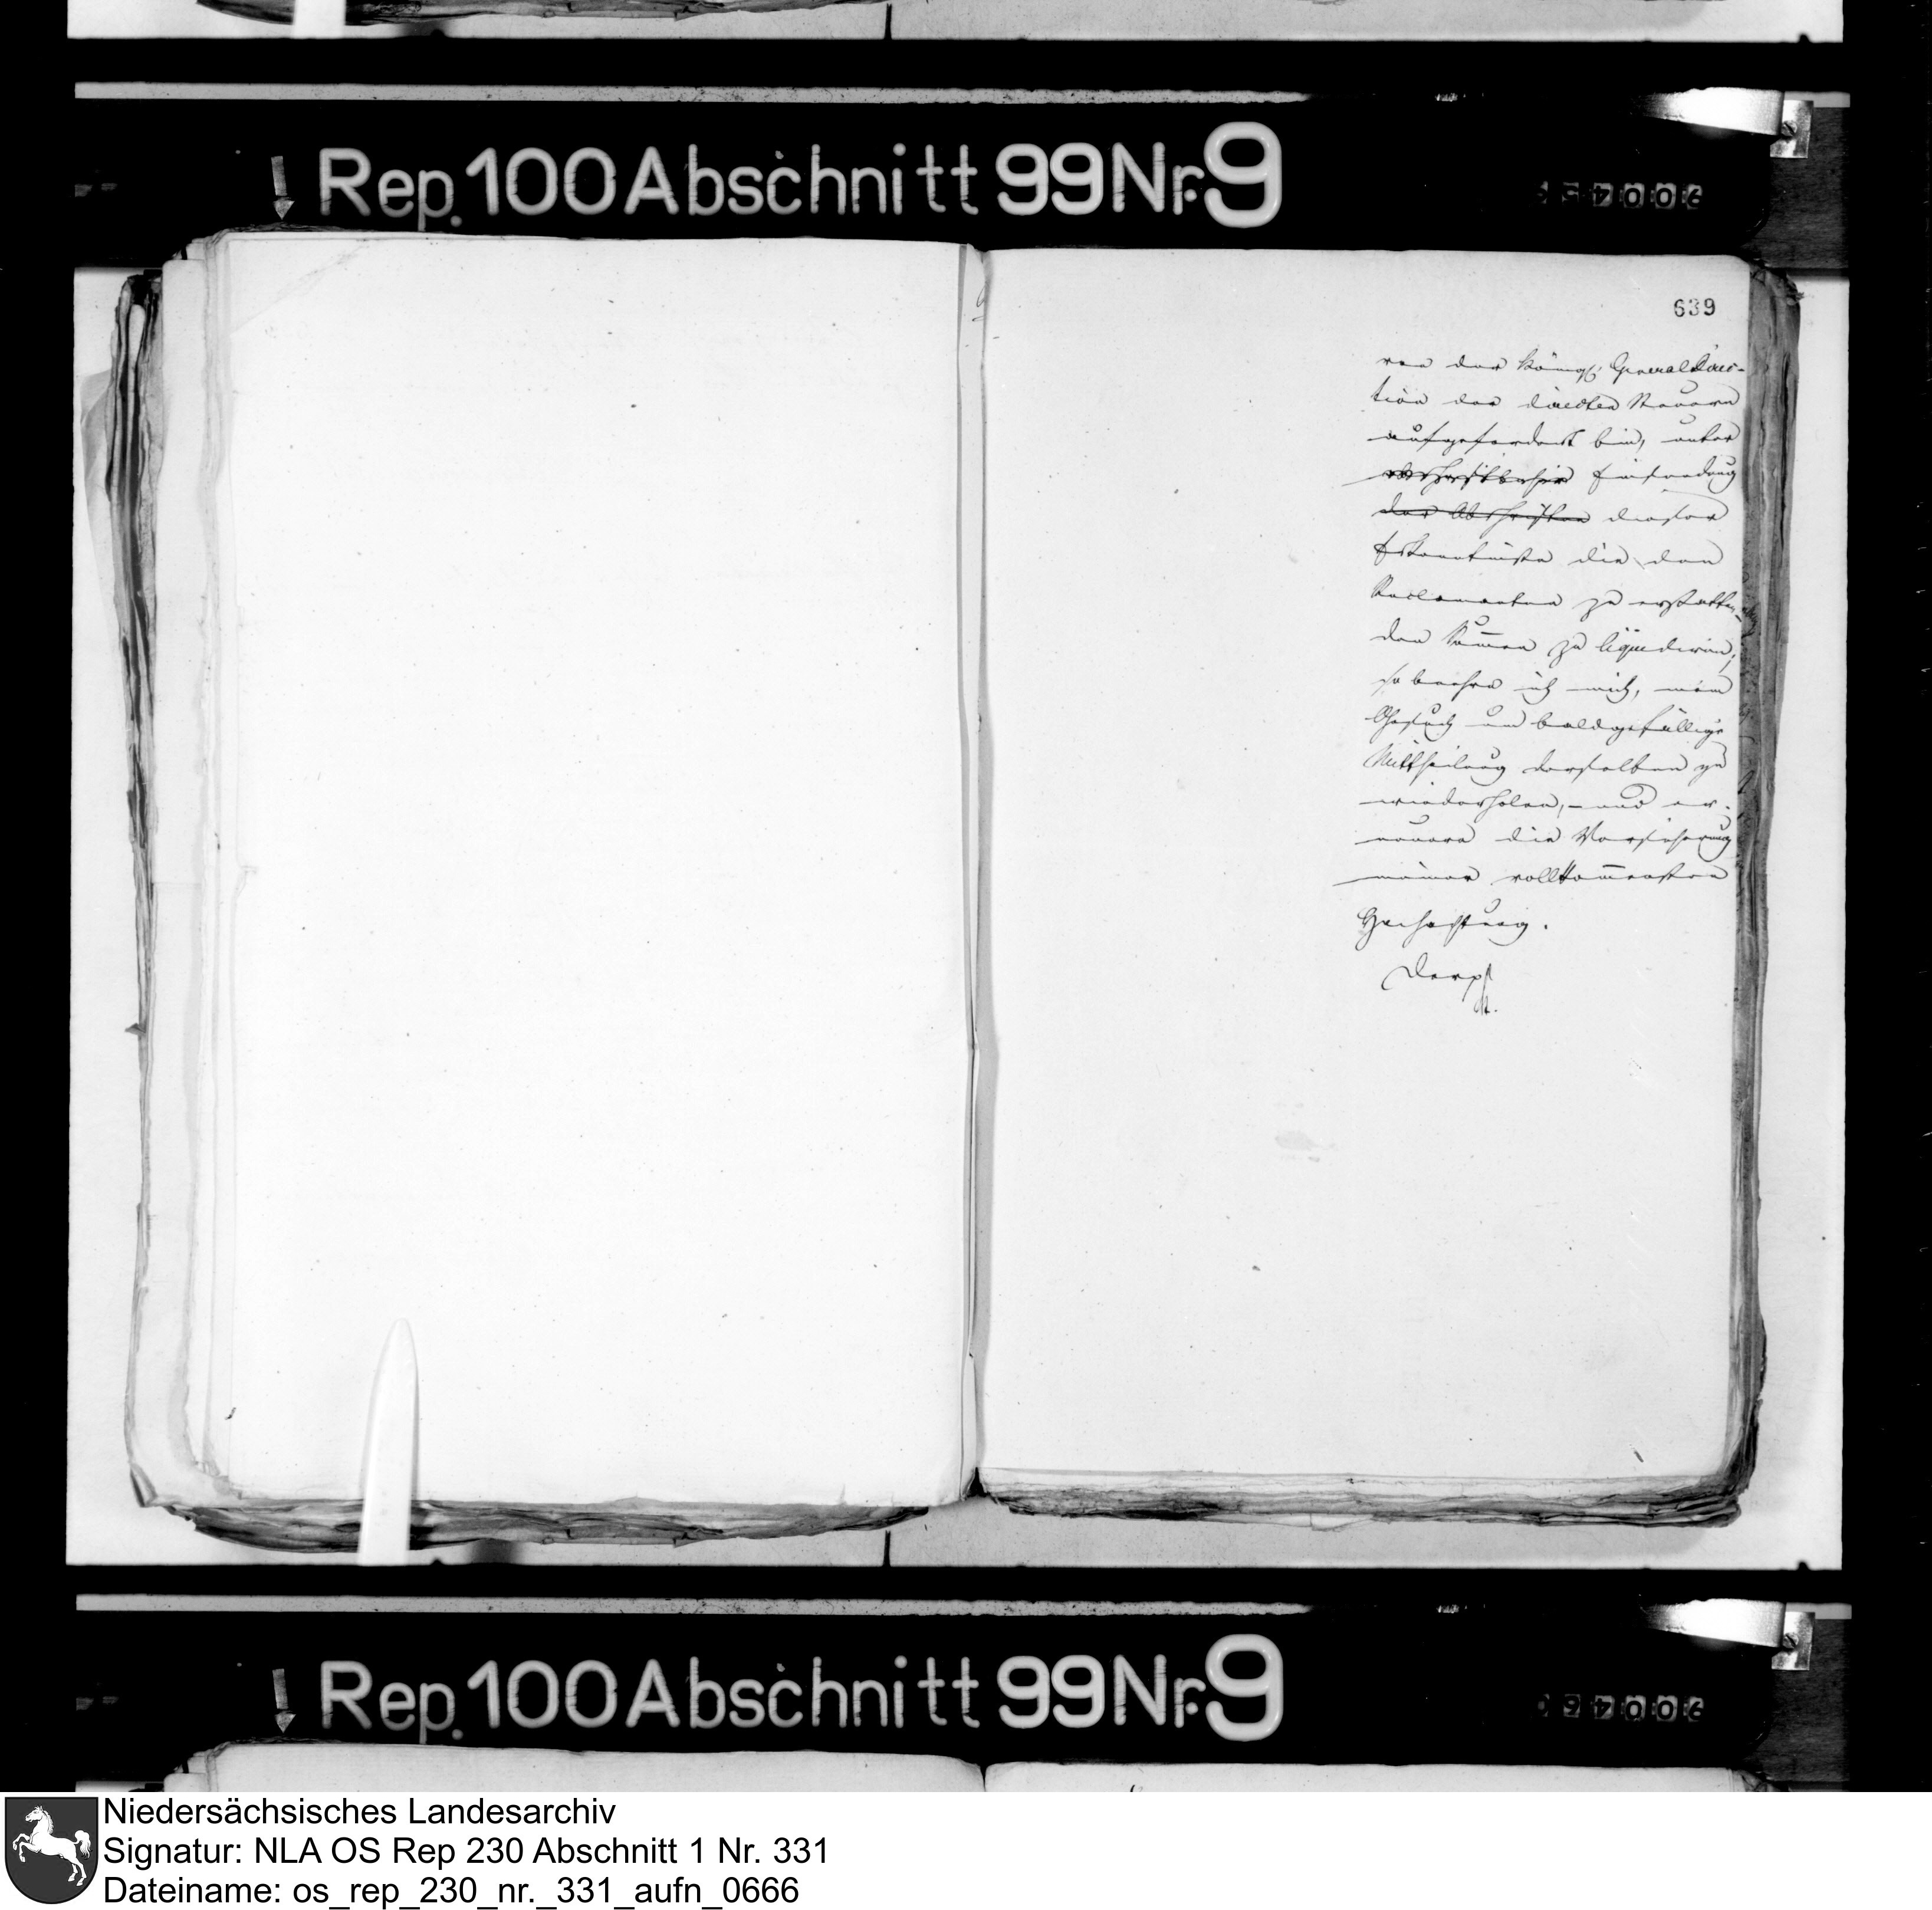 Rep. 100 Abschnitt 99 Nr. 9
639
von der Königl. General Direc-
tion der directen Steuern
aufgefordert bin, unter
Einsendung
der Abschriften dieser
Erkenntnisse die den
Reclamanten zu erstatten-
den Summen zu liquidiren,
so beehre ich mich, mein
Gesuch um baldgefällige
Mittheilung derselben zu
wiederholen, – und er-
neuere die Versicherung
meiner vollkommensten
Hochachtung.
Rep. 100 Abschnitt 99 Nr. 9
Niedersächsisches Landesarchiv
Signatur: NLA OS Rep 230 Abschnitt 1 Nr. 331
Dateiname: os_rep_230_nr._331_aufn_0666